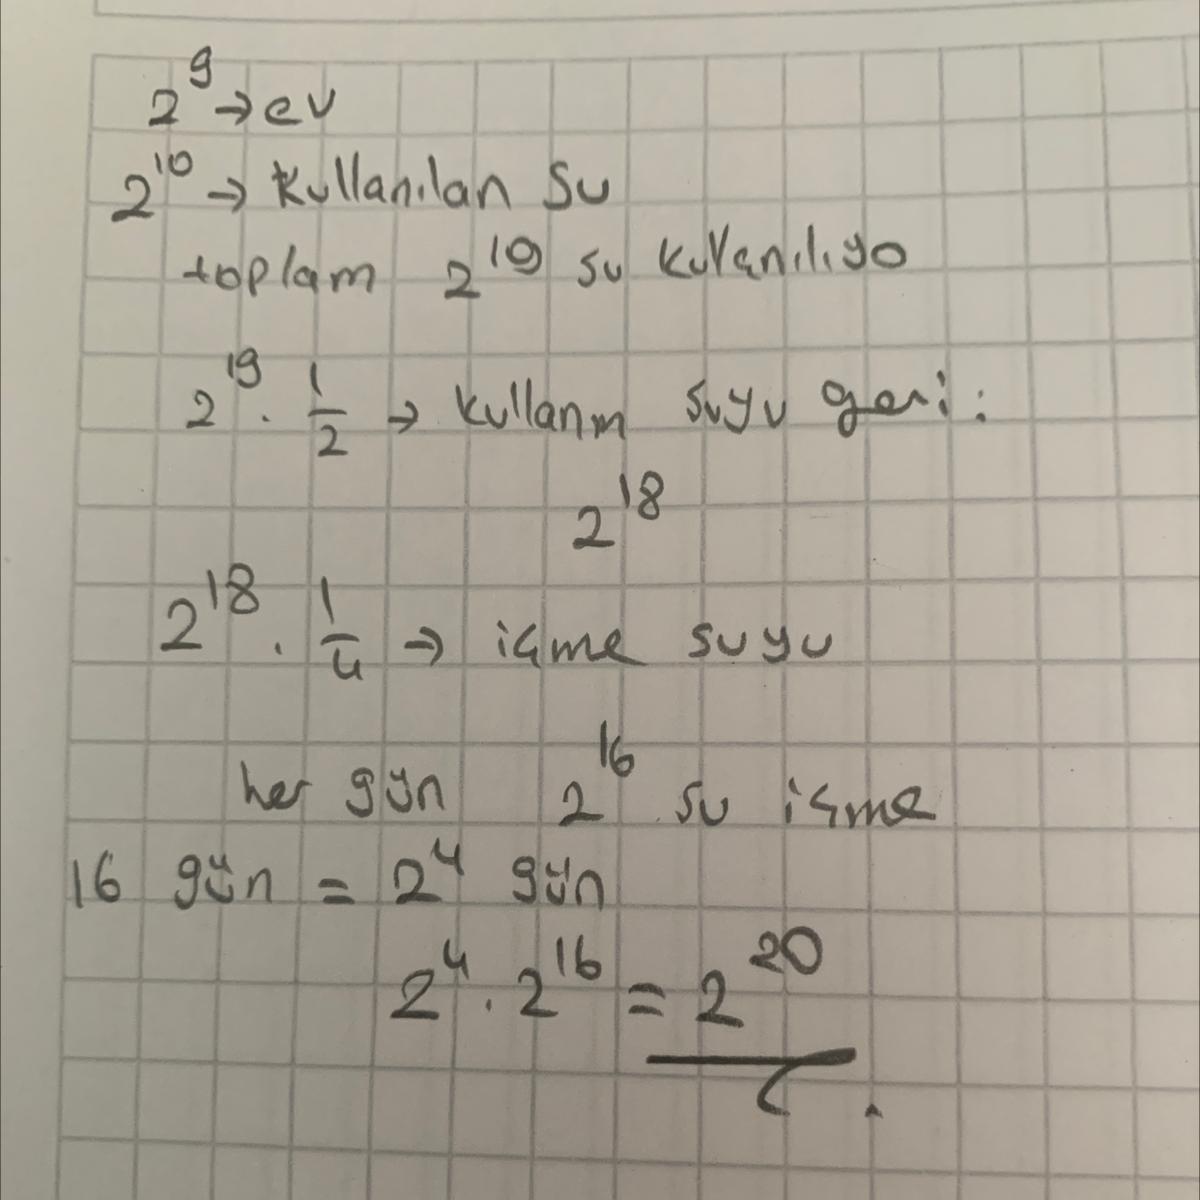 2⁹ → ev
2¹⁰ → kullanılan su
toplam 2¹⁹ su kullanılıyo
2¹⁹ . 1/2 → kullanm suyu geri :
2¹⁸
2¹⁸ . 1/4 → içme suyu
her gün 2¹⁶ su içme
16 gün = 2⁴ gün
2⁴ . 2¹⁶ = 2²⁰